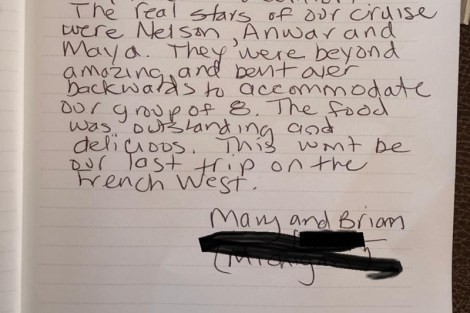 The real stars of our cruise
were Nelson, Anwar and
Maya. They were beyond
amazing and bent over
backwards to accommodate
our group of 8. The food
was outstanding and
delicious. This won't be
our last trip on the
French West.
Mary and Brian